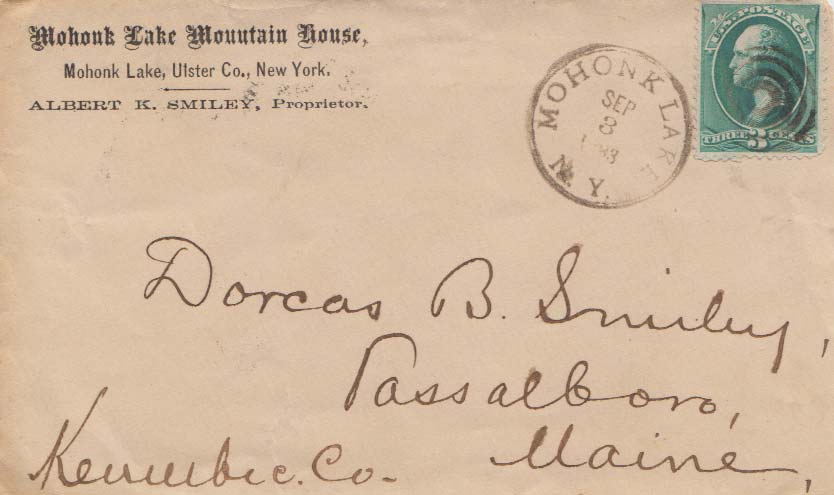 Mohonk Lake Mountain House,
Mohonk Lake, Ulster Co., New York.
ALBERT K. SMILEY, Proprietor.
MOHONK LAKE
SEP
3
N. Y.
U.S. POSTAGE
THREE 3 CENTS
Dorcas B. Smiley,
Vassalboro,
Kennebec. Co. Maine,